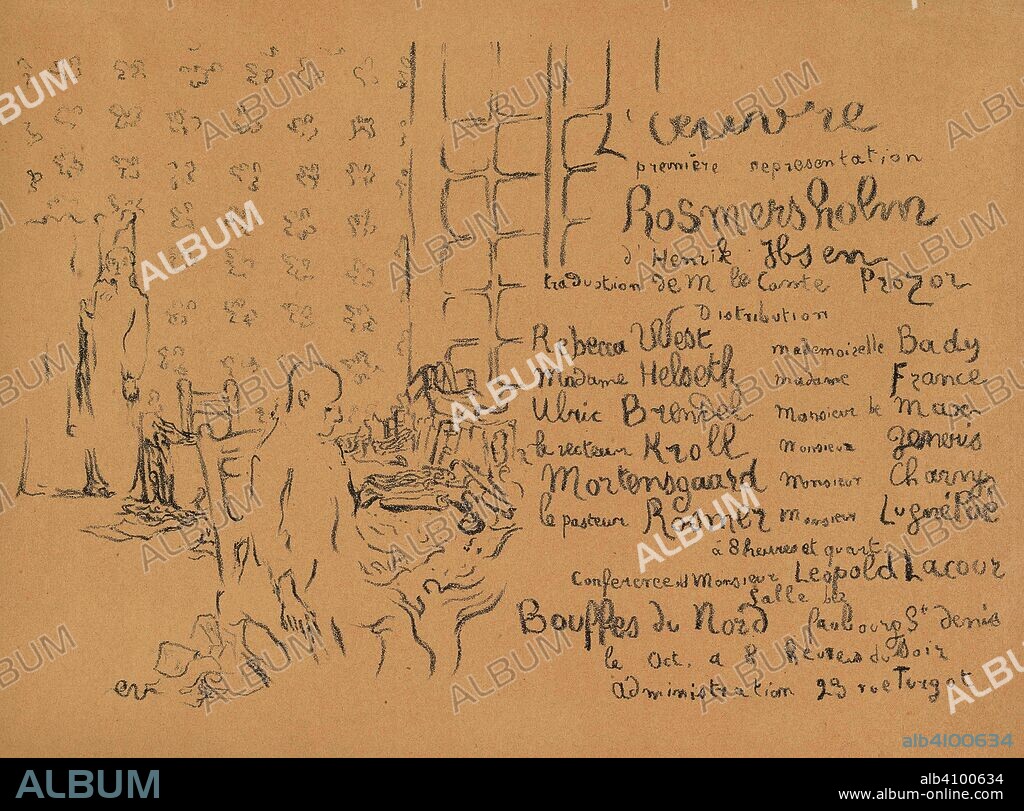 L'œuvre
première representation
Rosmersholm
d'Henrik Ibsen
traduction de M le Comte Prozor
Distribution
Rebecca West mademoiselle Bady
Madame Helseth madame France
Ulric Brendel Monsieur de Max
le recteur Kroll Monsieur
Mortensgaard Monsieur Charny
le pasteur Rosmer Monsieur Lugné Poé
à 8 heures et quart
Conference de Monsieur Leopold Lacour
Salle des
Bouffes du Nord faubourg St denis
le Oct. a 8 heures du Soir
administration 23 rue Turgot
ev
ALBUM
alb4100634
ALBUM
alb4100634
www.album-online.com